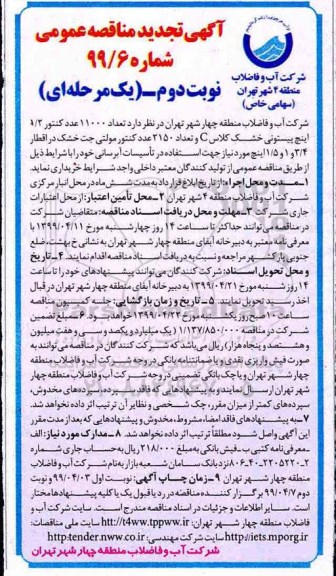 آگهی تجدید مناقصه عمومی
شماره ۹۹/۶
نوبت دوم ــ (یک مرحله‌ای)
شرکت آب و فاضلاب
منطقه ۴ شهر تهران
(سهامی خاص)
شرکت آب و فاضلاب منطقه چهار شهر تهران در نظر دارد تعداد ۱۱۰۰۰ عدد کنتور ۱/۲
اینچ پیستونی خشک کلاس C و تعداد ۲۱۵۰ عدد کنتور مولتی جت خشک در اقطار
۳/۴ و ۱ و ۱/۵ اینچ مورد نیاز جهت استفاده در تأسیسات آبرسانی خود را با شرایط ذیل
از طریق مناقصه عمومی از تولید کنندگان معتبر داخلی واجد شرایط خریداری نماید.
۱ــ مدت و محل اجرا: از تاریخ ابلاغ قرارداد به مدت شش ماه در محل انبار مرکزی
شرکت آب و فاضلاب منطقه ۴ شهر تهران ۲ــ محل تأمین اعتبار: از محل اعتبارات
جاری شرکت ۳ــ مهلت و محل دریافت اسناد مناقصه: متقاضیان شرکت
در مناقصه می‌توانند حداکثر تا ساعت ۱۴ روز چهارشنبه مورخ ۱۳۹۹/۰۴/۱۱ با
معرفی‌نامه معتبر به دبیرخانه آبفای منطقه چهار شهر تهران به نشانی خ بهشت، ضلع
جنوبی پارکشهر مراجعه و نسبت به دریافت اسناد مناقصه اقدام نمایند. ۴ــ تاریخ
و محل تحویل اسناد: شرکت کنندگان می‌توانند پیشنهادهای خود را تا ساعت
۱۴ روز شنبه مورخ ۱۳۹۹/۰۴/۲۱ به دبیرخانه آبفای منطقه چهار شهر تهران در قبال
اخذ رسید تحویل نمایند. ۵ــ تاریخ و زمان بازگشایی: جلسه کمیسیون مناقصه
ساعت ۱۰ صبح روز یکشنبه مورخ ۱۳۹۹/۰۴/۲۲ خواهد بود. ۶ــ مبلغ تضمین
شرکت در مناقصه ۱/۱۳۷/۸۵۰/۰۰۰ (یک میلیارد و یکصد و سی و هفت میلیون
و هشتصد و پنجاه هزار) ریال می‌باشد که شرکت کنندگان در مناقصه می‌توانند به
صورت فیش واریزی نقدی و یا ضمانتنامه بانکی در وجه شرکت آب و فاضلاب منطقه
چهار شهر تهران و یا چک بانکی تضمینی در وجه شرکت آب و فاضلاب منطقه چهار
شهر تهران ارسال نمایند و به پیشنهادهای که فاقد سپرده، سپرده‌های مخدوش،
سپرده‌های کمتر از میزان مقرر، چک شخصی و نظایر آن ترتیب اثر داده نخواهد شد.
۷ــ به پیشنهادهای فاقد امضا، مشروط، مخدوش و پیشنهادهایی که بعد از مدت مقرر
این آگهی واصل شود مطلقاً ترتیب اثر داده نخواهد شد. ۸ــ مدارک مورد نیاز: الف
ــ معرفی‌نامه کتبی ب ــ فیش بانکی به مبلغ ۲۱۸/۰۰۰ ریال به حساب جاری شماره
نزد بانک سامان شعبه بازار به نام شرکت آب و فاضلاب
منطقه چهار شهر تهران ۹ــ زمان چاپ آگهی: نوبت اول ۹۹/۰۴/۰۳ و نوبت
دوم ۹۹/۰۴/۷ برگزار کننده مناقصه در رد یا قبول یک یا کلیه پیشنهادها مختار
است. سایر اطلاعات و جزئیات در اسناد مناقصه مندرج است. سایت شرکت آب و
فاضلاب منطقه چهار شهر تهران: http://t4ww.tppww.ir سایت ملی مناقصات:
http://iets.mporg.ir سایت شرکت مهندسی: http:tender.nww.co.ir
شرکت آب و فاضلاب منطقه چهار شهر تهران